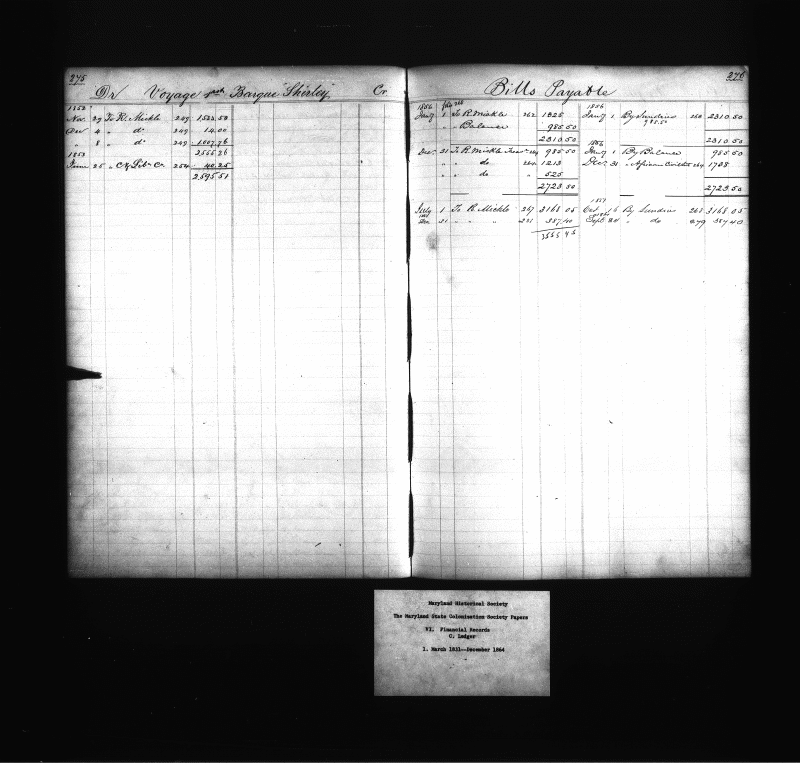 275
Dr Voyage Barque Shirley Cr.
1852
Nov. 29 To R. Mickle 249 1533.50
Dec 4 " do 249 14.00
" 8 " do 249 1,007.76
2555.26
1853
June 25 " Co. 254 40.25
2595.51
276
Bills Payable
1856
Jany 1 To R. Mickle 262 1325
" " Balance 985.50
2310.50
Dec. 31 To R. Mickle 264 985.50
" " do 264 1213
" " do " 525
2723.50
July 1 To R. Mickle 267 3168.05
Dec. 31 " " " 281 387.40
3555.45
1856
Jany 1 By Sundries 260 2310.50
985.50
2310.50
1856
Jany 1 By Balance 985.50
Dec. 31 " African 264 1738
2723.50
1857
Oct 16 By Sundries 268 3168.05
Sept 24 " do 279 387.40
Maryland Historical Society
The Maryland State Colonization Society Papers
VI. Financial Records
C. Ledger
1. March 1831--December 1864